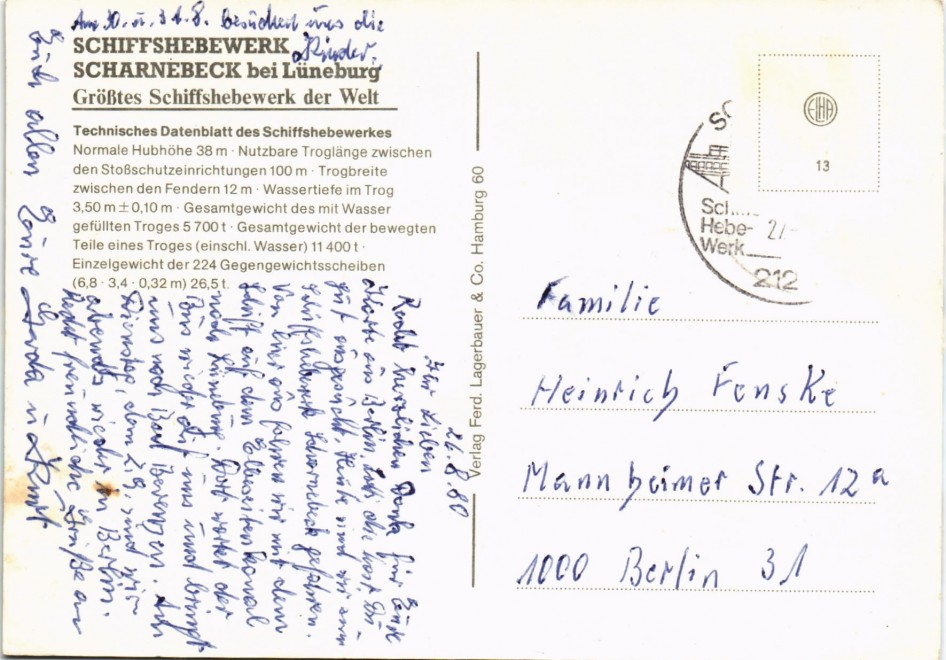 Am 30. u. 31.8. besuchen uns die
Kinder.
SCHIFFSHEBEWERK
SCHARNEBECK bei Lüneburg
Größtes Schiffshebewerk der Welt
Technisches Datenblatt des Schiffshebewerkes
Normale Hubhöhe 38 m · Nutzbare Troglänge zwischen
den Stoßschutzeinrichtungen 100 m · Trogbreite
zwischen den Fendern 12 m · Wassertiefe im Trog
3,50 m ± 0,10 m · Gesamtgewicht des mit Wasser
gefüllten Troges 5 700 t · Gesamtgewicht der bewegten
Teile eines Troges (einschl. Wasser) 11 400 t ·
Einzelgewicht der 224 Gegengewichtsscheiben
(6,8 · 3,4 · 0,32 m) 26,5 t.
26.8.80
Ihr Lieben
Recht herzlichen Dank für Eure
Karte aus Berlin, hast du
gut ausgesucht. Heute sind wir zum
Schiffshebewerk Scharnebeck gefahren.
Von hier aus fahren wir mit dem
Schiff auf dem Elbeseitenkanal
nach Lüneburg. Dort wartet der
Bus wieder auf uns und bringt
uns nach Bad Bevensen. Am
Dienstag, dem 2.9. sind wir
abends wieder in Berlin.
Recht freundliche Grüße an
Euch allen Eure Gerda u. Kurt
Verlag Ferd. Lagerbauer & Co. Hamburg 60
EIHA
13
Hebe-
Werk
212
Familie
Heinrich Fenske
Mannheimer Str. 12a
1000 Berlin 31